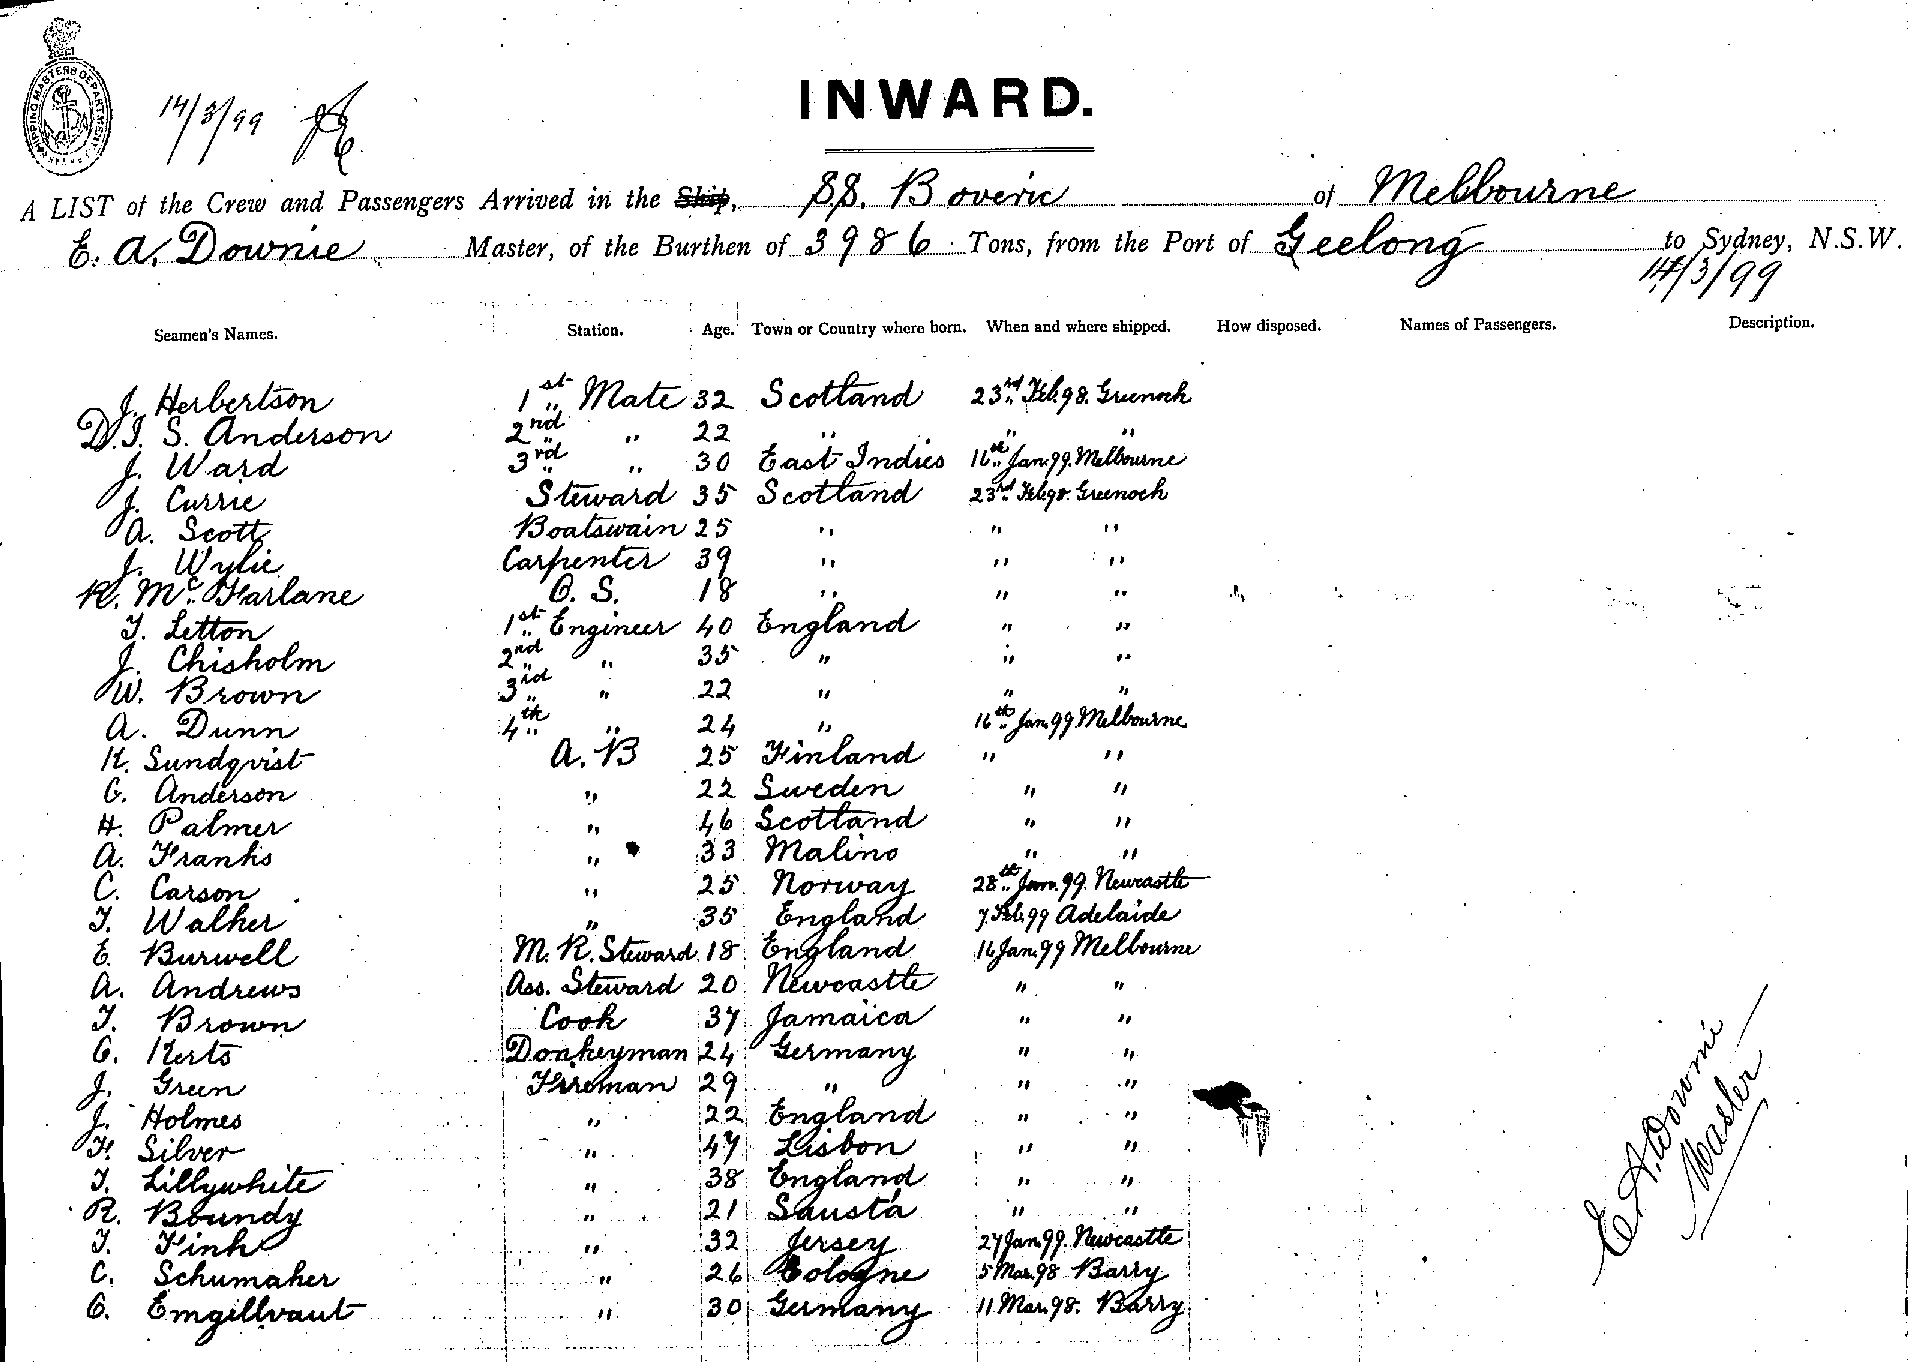 SHIPPING MASTERS DEPARTMENT
14/3/99
INWARD.
A LIST of the Crew and Passengers Arrived in the Ship, SS. Boveric of Melbourne
E. A. Downie Master, of the Burthen of 3986 Tons, from the Port of Geelong to Sydney, N.S.W.
14/3/99
Seamen's Names. Station. Age. Town or Country where born. When and where shipped. How disposed. Names of Passengers. Description.
J. Herbertson 1st Mate 32 Scotland 23rd Feb. 98. Greenock
D. J. S. Anderson 2nd " 22 " " "
J. Ward 3rd " 30 East Indies 16th Jan. 99. Melbourne
J. Currie Steward 35 Scotland 23rd Feb 98. Greenock
A. Scott Boatswain 25 " " "
J. Wylie Carpenter 39 " " "
R. McFarlane O. S. 18 " " "
T. Letton 1st Engineer 40 England " "
J. Chisholm 2nd " 35 " " "
W. Brown 3rd " 22 " " "
A. Dunn 4th " 24 " 16th Jan. 99 Melbourne
K. Sundqvist A. B 25 Finland " "
G. Anderson " 22 Sweden " "
H. Palmer " 46 Scotland " "
A. Franks " 33 Malino " "
C. Carson " 25 Norway 28th Jan. 99. Newcastle
T. Walker " 35 England 7 Feb. 99 Adelaide
E. Burwell M. R. Steward 18 England 16 Jan. 99 Melbourne
A. Andrews Ass. Steward 20 Newcastle " "
T. Brown Cook 37 Jamaica " "
G. Kerts Donkeyman 24 Germany " "
J. Green Fireman 29 " " "
J. Holmes " 22 England " "
F. Silver " 47 Lisbon " "
T. Lillywhite " 38 England " "
R. Boundy " 21 " "
T. Fink " 32 Jersey 27 Jan. 99. Newcastle
C. Schumaker " 26 Cologne 5 Mar. 98 Barry
G. Emgillvaut " 30 Germany 11 Mar. 98. Barry
E A. Downie
Master